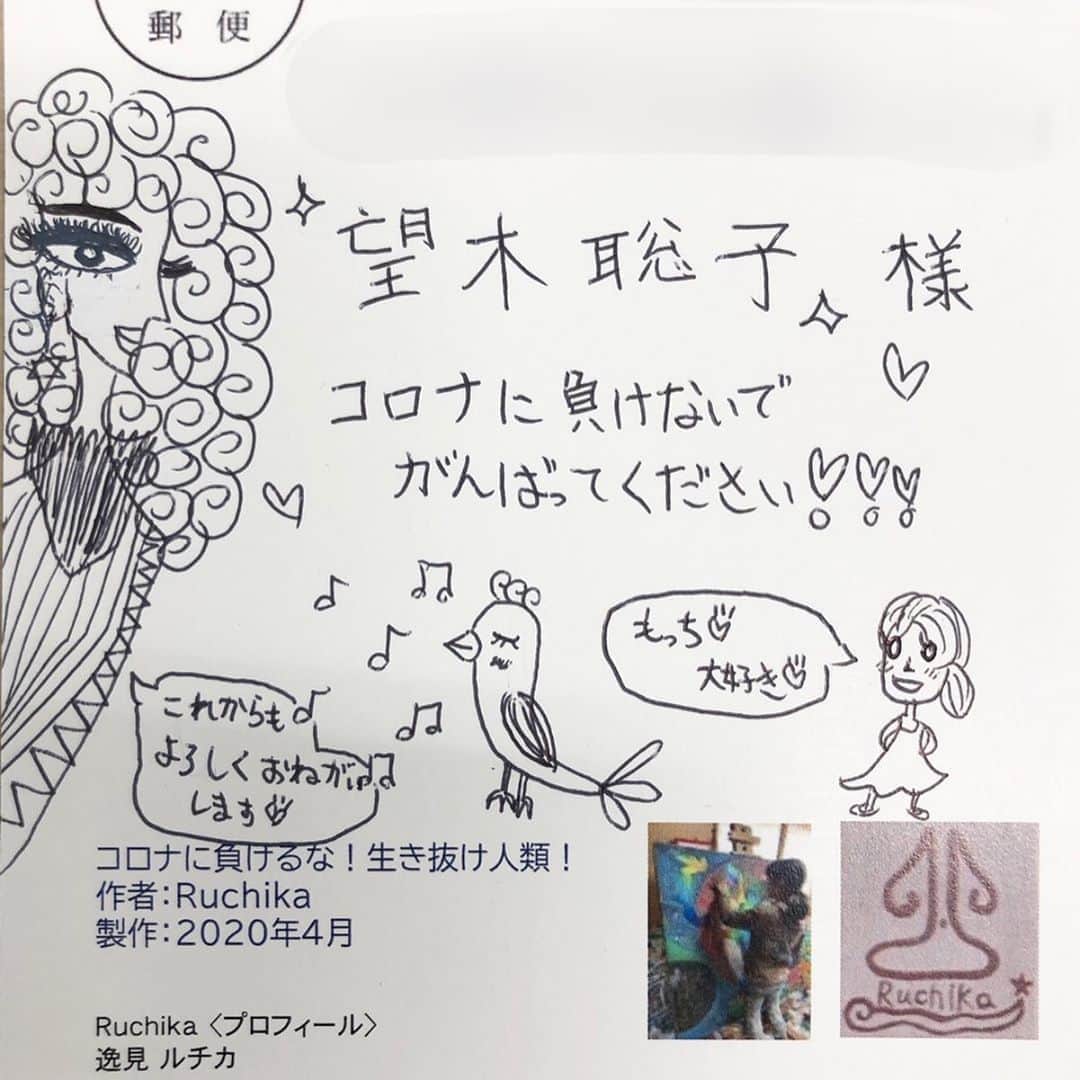 郵便
望木聡子様
コロナに負けないで
がんばってください!!!
もっち
大好き
これからも
よろしくおねがい
します
コロナに負けるな！生き抜け人類！
作者：Ruchika
製作：2020年4月
Ruchika
Ruchika〈プロフィール〉
逸見 ルチカ